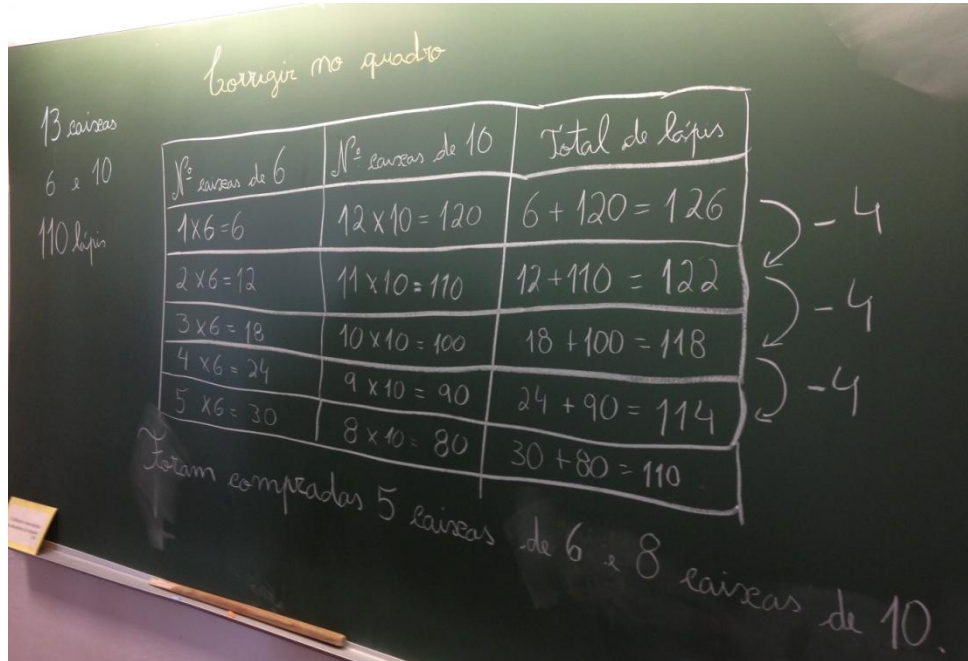 Corrigir no quadro
13 caixas
6 e 10
110 lápis
Nº caixas de 6 Nº caixas de 10 Total de lápis
1x6=6 12x10=120 6+120=126
2x6=12 11x10=110 12+110=122
3x6=18 10x10=100 18+100=118
4x6=24 9x10=90 24+90=114
5x6=30 8x10=80 30+80=110
-4
-4
-4
Foram compradas 5 caixas de 6 e 8 caixas de 10.